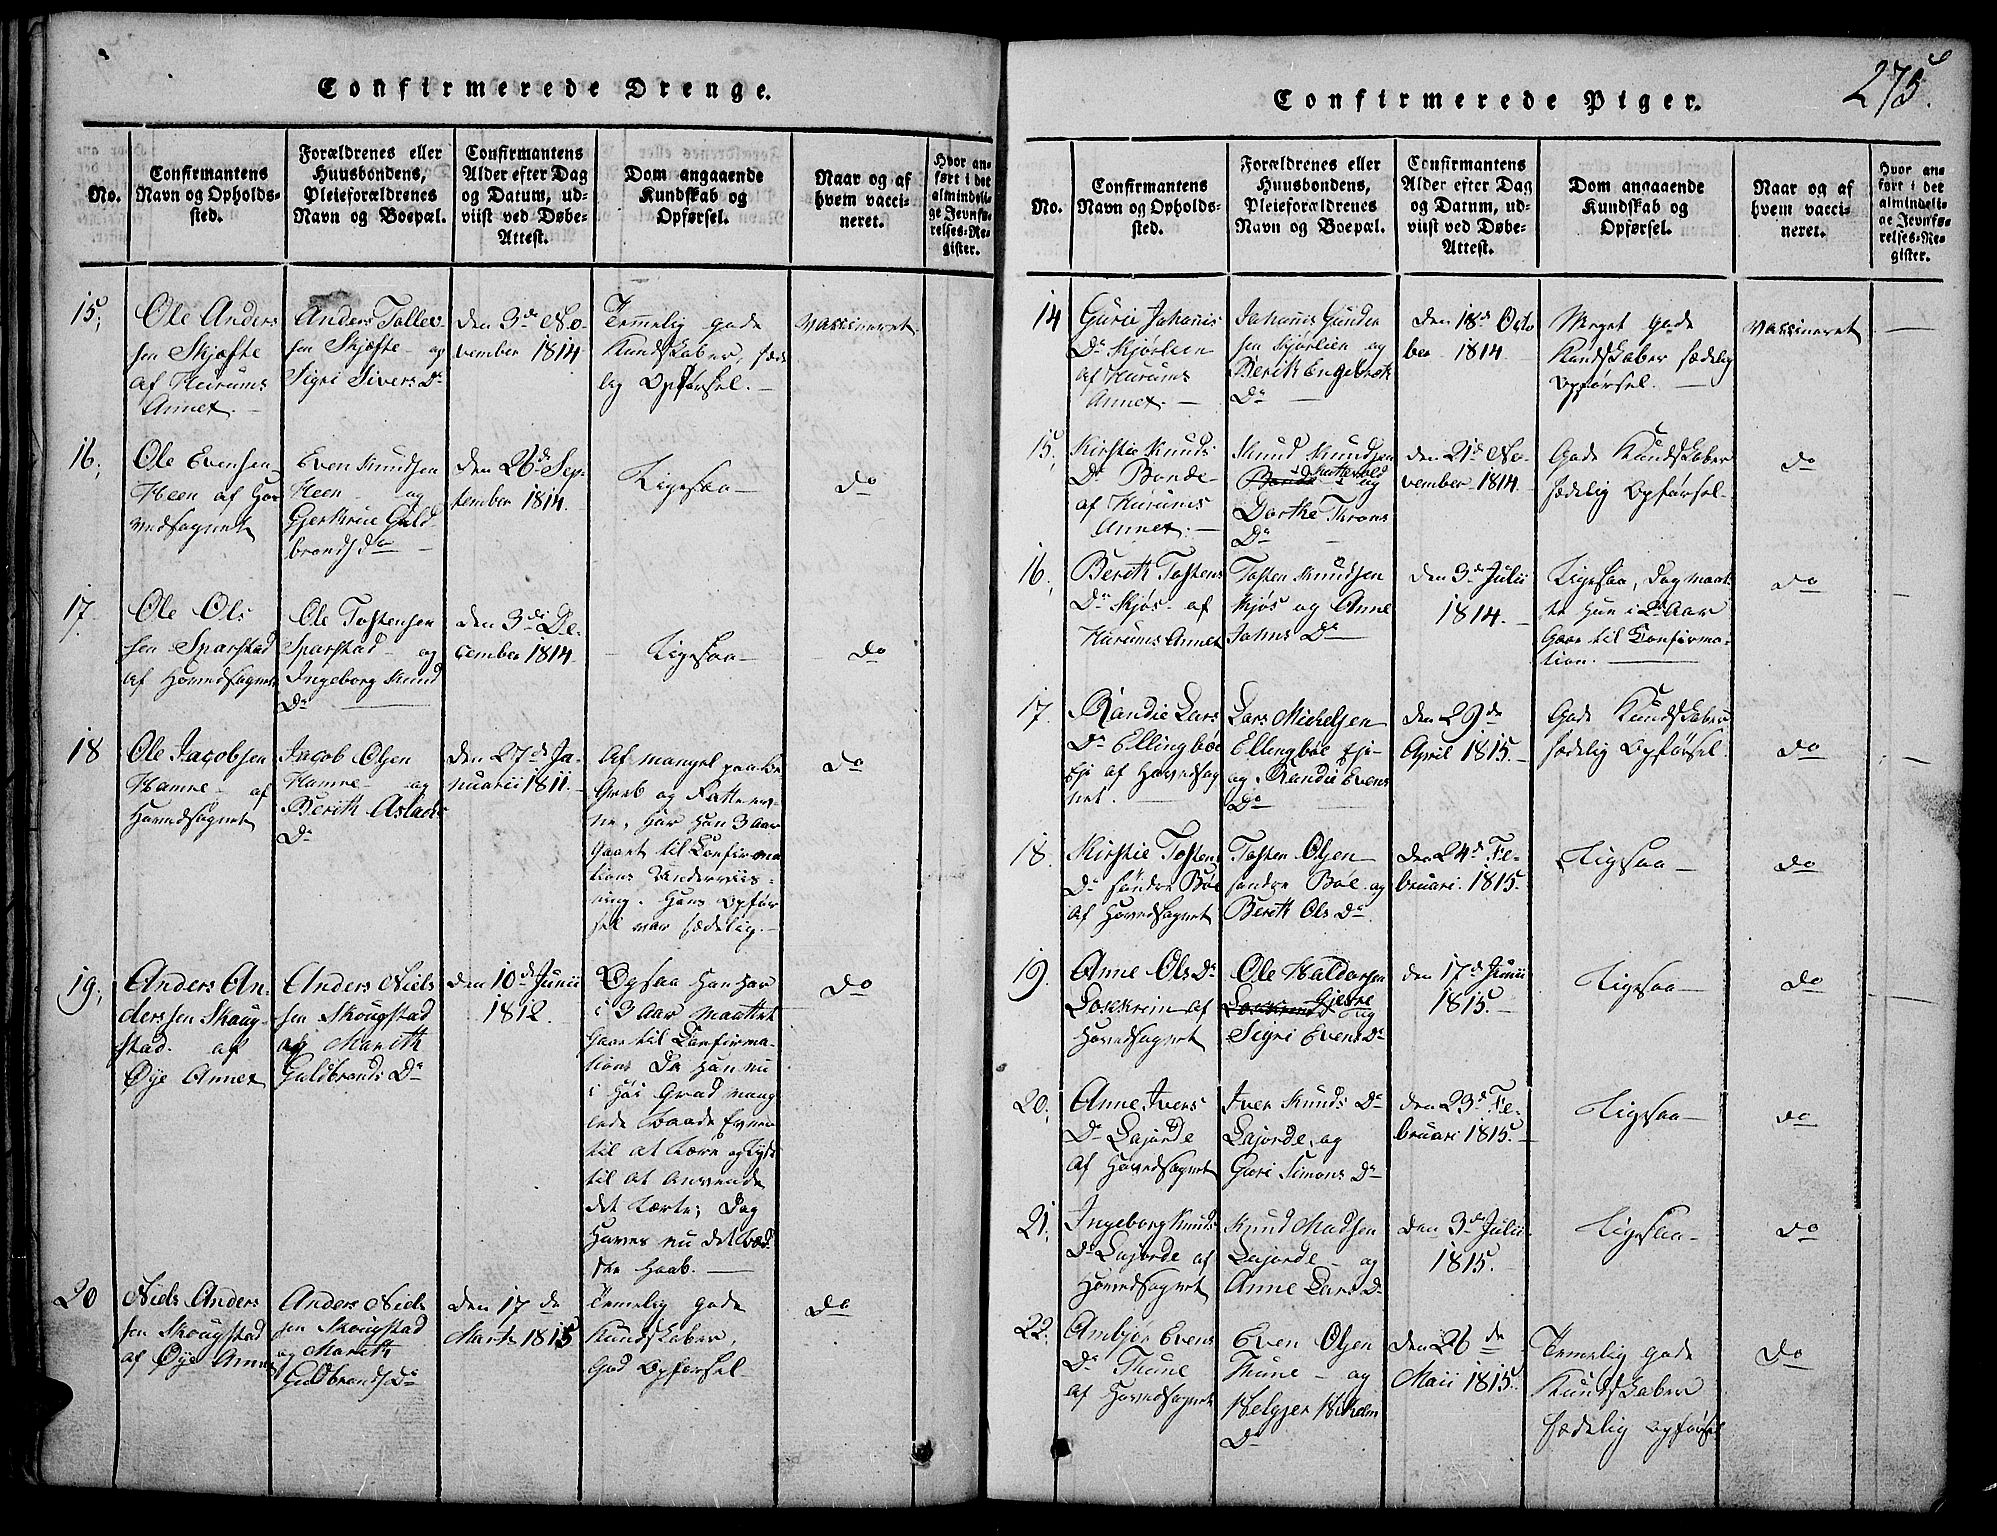 Confirmerede Drenge.
No.
Confirmantens
Navn og Opholds-
sted.
Forældrenes eller
Huusbondens,
Pleieforældrenes
Navn og Boepæl.
Confirmantens
Alder efter Dag
og Datum, ud-
viist ved Døbe-
Attest.
Dom angaaende
Kundskab og
Opførsel.
Naar og af
hvem vacci-
neret.
Hvor an-
ført i det
almindeli-
ge Jevnfø-
relses-Re-
gister.
15,
Ole Anders
sen Skjefte
af Hurums
Annex.
Anders Tollev-
sen Skjefte og
Sigri Sivers Dr
den 3de No-
vember 1814
Temmelig gode
Kundskaber, sæde
lig Opførsel.
Vaccineret
16,
Ole Evensen
Heen af Ho-
vedsognet
Even Knudsen
Heen og
Gjertrue Guld
brands Dr
den 26de Sep-
tember 1814
Ligesaa
do
17.
Ole Ols
sen Sparstad
af Hovedsognet
Ole Tostensen
Sparstad og
Ingeborg Knud
Dr
den 3de De-
cember 1814
Ligesaa
do
18
Ole Jacobsen
Hamre af
Hovedsognet
Jacob Olsen
Hamre og
Berith Aslacks
Dr
den 27de Ja-
nuarii 1811.
Af mangel paa Be
Greb og Fatteev-
ne, har han 3 Aar
gaaet til Confirma
tions Underviis-
ning. Hans Opfør
sel var sædelig.
do
19,
Anders An-
dersen Skoug-
stad af
Øye Annex
Anders Niels
sen Skougstad
og Marith
Guldbrands Dr
den 10de Junii
1812
Ogsaa han har
i 3 Aar maattet
gaae til Confirma-
tions Da han nu
i høi Grad mang
lede baade Evnen
til at Lære og Lyst
til at Anvende
det Lærte; Dog
haves nu det bed
ste Haab.
do
20
Niels Anders
sen Skougstad
af Øye Annex
Anders Niels
sen Skougstad
og Marith
Guldbrands Dr
den 17de
Marts 1815
Temelig gode
Kundskaber,
God Opførsel
do
275.
Confirmerede Piger.
No.
Confirmantens
Navn og Opholds-
sted.
Forældrenes eller
Huusbondens,
Pleieforældrenes
Navn og Boepæl.
Confirmantens
Alder efter Dag
og Datum, ud-
viist ved Døbe-
Attest.
Dom angaaende
Kundskab og
Opførsel.
Naar og af
hvem vacci-
neret.
Hvor an-
ført i det
almindeli-
ge Jevnfø-
relses-Re-
gister.
14
Gurie Johanis
Dr Kjørlien
af Hurums
Annex.
Johannis Gunder
sen Kjørlien og
Berith Engebreth
Dr
den 18de Octo
ber 1814.
Meget gode
Kundskaber sædelig
Opførsel.
Vaccineret
15,
Kirstie Knuds
Dr Bonde
af Hurums
Annex.
Knud Knudsen
og
Dorthe Throns
Dr
den 21de No-
vember 1814.
Gode Kundskaber
sædelig Opførsel
do
16,
Berith Tostens
Dr Kjøs af
Hurums Annex
Tosten Knudsen
Kjøs og Anne
Johns Dr
den 3de Julii
1814.
Ligesaa, Dog maat
te hun i 2 Aar
Gaae til Confirma-
tion.
do
17.
Randie Lars
Dr Ellingbøe
Eje af Hovedsog
net.
Lars Michelsen
Ellingbøe Eje
og Randie Evens
Dr
den 29de
April 1815.
Gode Kundskaber
sædelig Opførsel
do
18.
Kirstie Tostens
Dr søndre Bøe
af Hovedsognet
Tosten Olsen
søndre Bøe og
Berith Ols Dr
den 24de Fe-
bruari. 1815.
Ligesaa
do
19.
Anne Ols Dr
Loekrein af
Hovedsognet
Ole Haldorsen
og
Sigri Evens Dr
den 17de Junii
1815.
Ligesaa
do
20,
Anne Ivers
Dr Lajorde
af Hovedsognet
Iver Knuds Dr
Lajorde og
Guri Simons Dr
den 23de Fe-
bruari 1815.
Ligesaa
do
21,
Ingeborg Knuds
Dr Lajorde af
Hovedsognet
Knud Madsen
Lajorde og
Anne Lars Dr
den 3de Julii
1815.
Ligesaa
do
22.
Ambjør Evens
Dr Thune
af Hovedsognet
Even Olsen
Thune og
Dr
den 26de
Maii 1815.
Temelig gode
Kundskaber
sædelig Opførsel
do